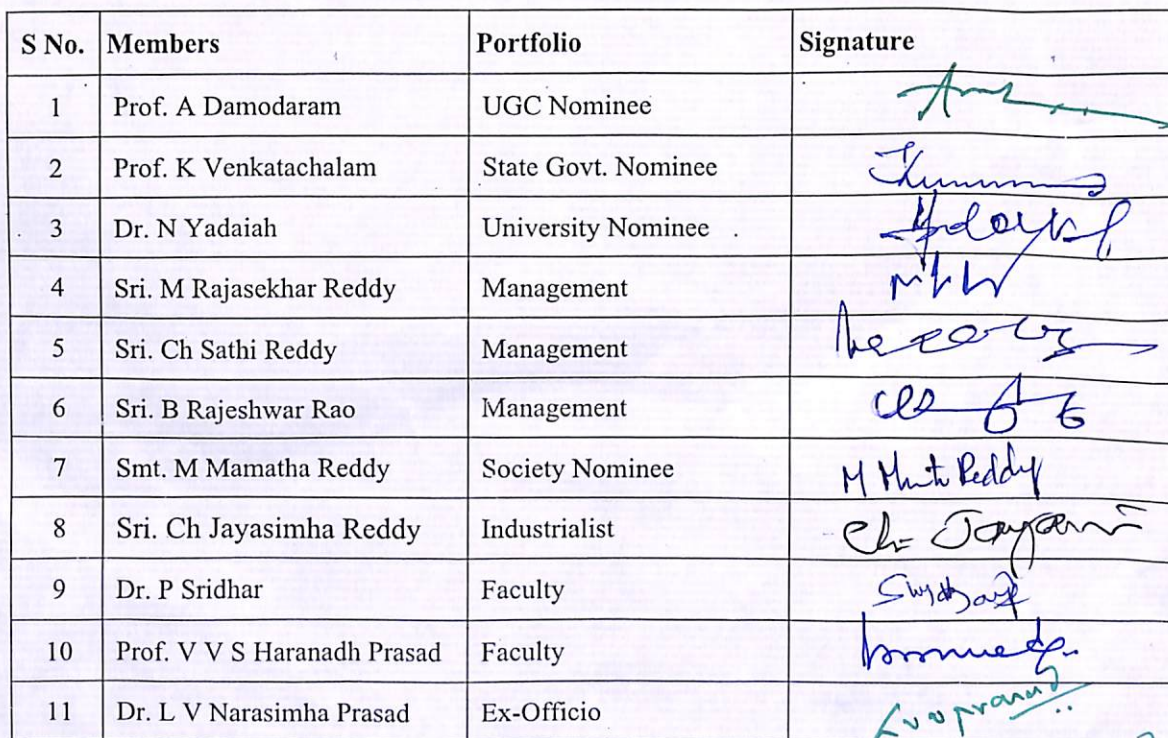 S No. Members Portfolio Signature
1 Prof. A Damodaram UGC Nominee
2 Prof. K Venkatachalam State Govt. Nominee
3 Dr. N Yadaiah University Nominee
4 Sri. M Rajasekhar Reddy Management
5 Sri. Ch Sathi Reddy Management
6 Sri. B Rajeshwar Rao Management
7 Smt. M Mamatha Reddy Society Nominee M Reddy
8 Sri. Ch Jayasimha Reddy Industrialist
9 Dr. P Sridhar Faculty
10 Prof. V V S Haranadh Prasad Faculty
11 Dr. L V Narasimha Prasad Ex-Officio